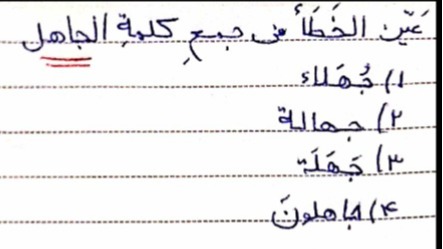 عَيّن الخَطَأ في جمعِ كلمةِ الجاهل
۱) جُهَلاء
۲) جهالة
۳) جَهَلَة
۴) جاهلونَ